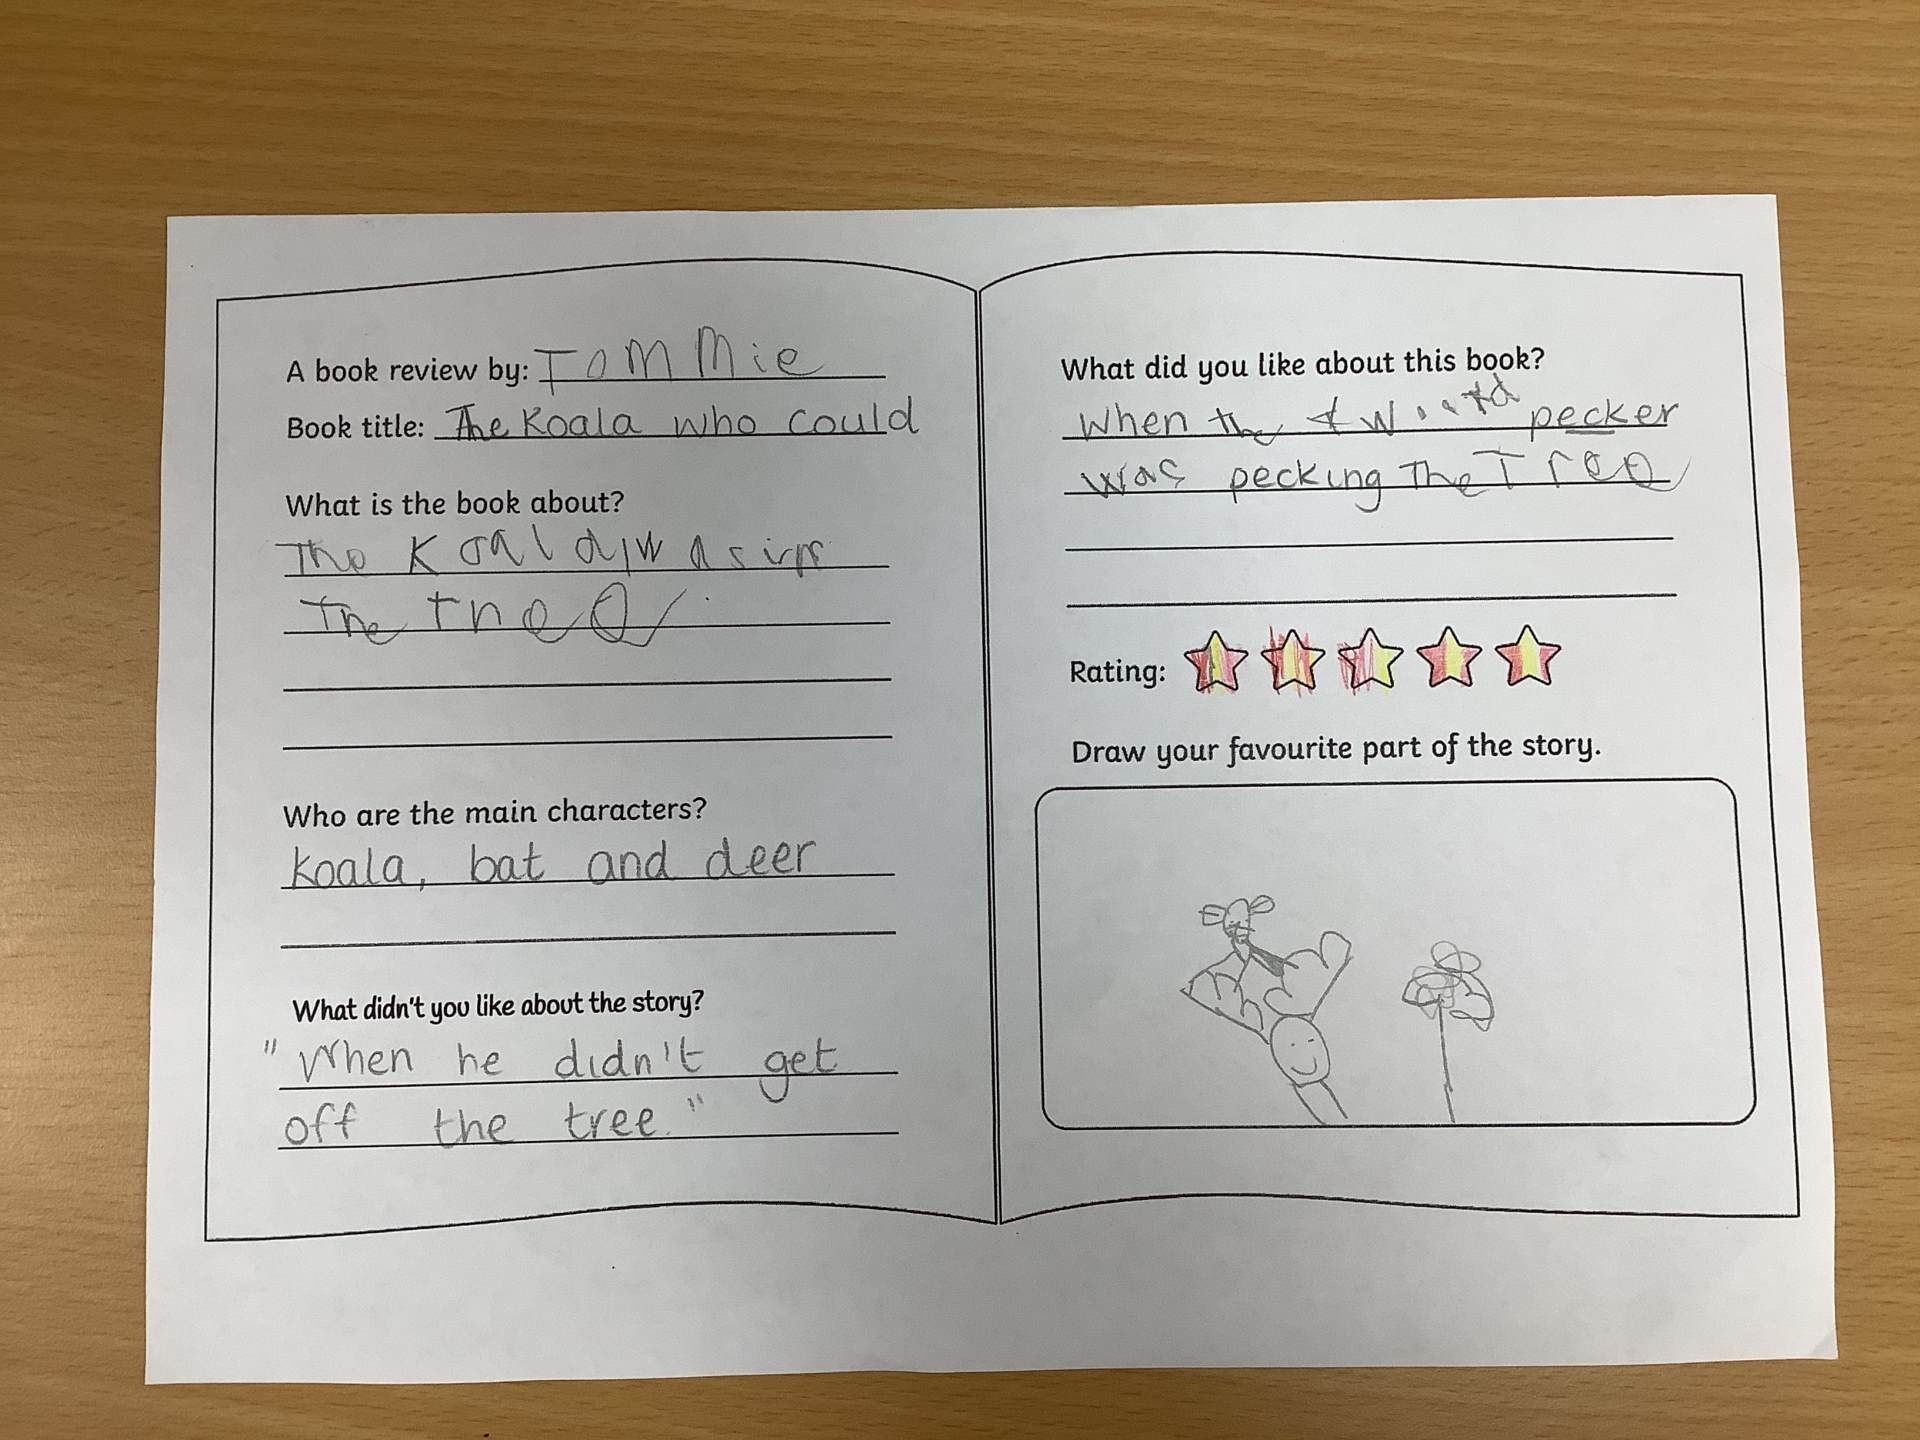 A book review by: TomMie
Book title: The Koala who could
What is the book about?
The Koala was in
The tree
Who are the main characters?
Koala, bat and deer
What didn't you like about the story?
"When he didn't get
off the tree."
What did you like about this book?
When the pecker
was pecking The Tree
Rating:
Draw your favourite part of the story.